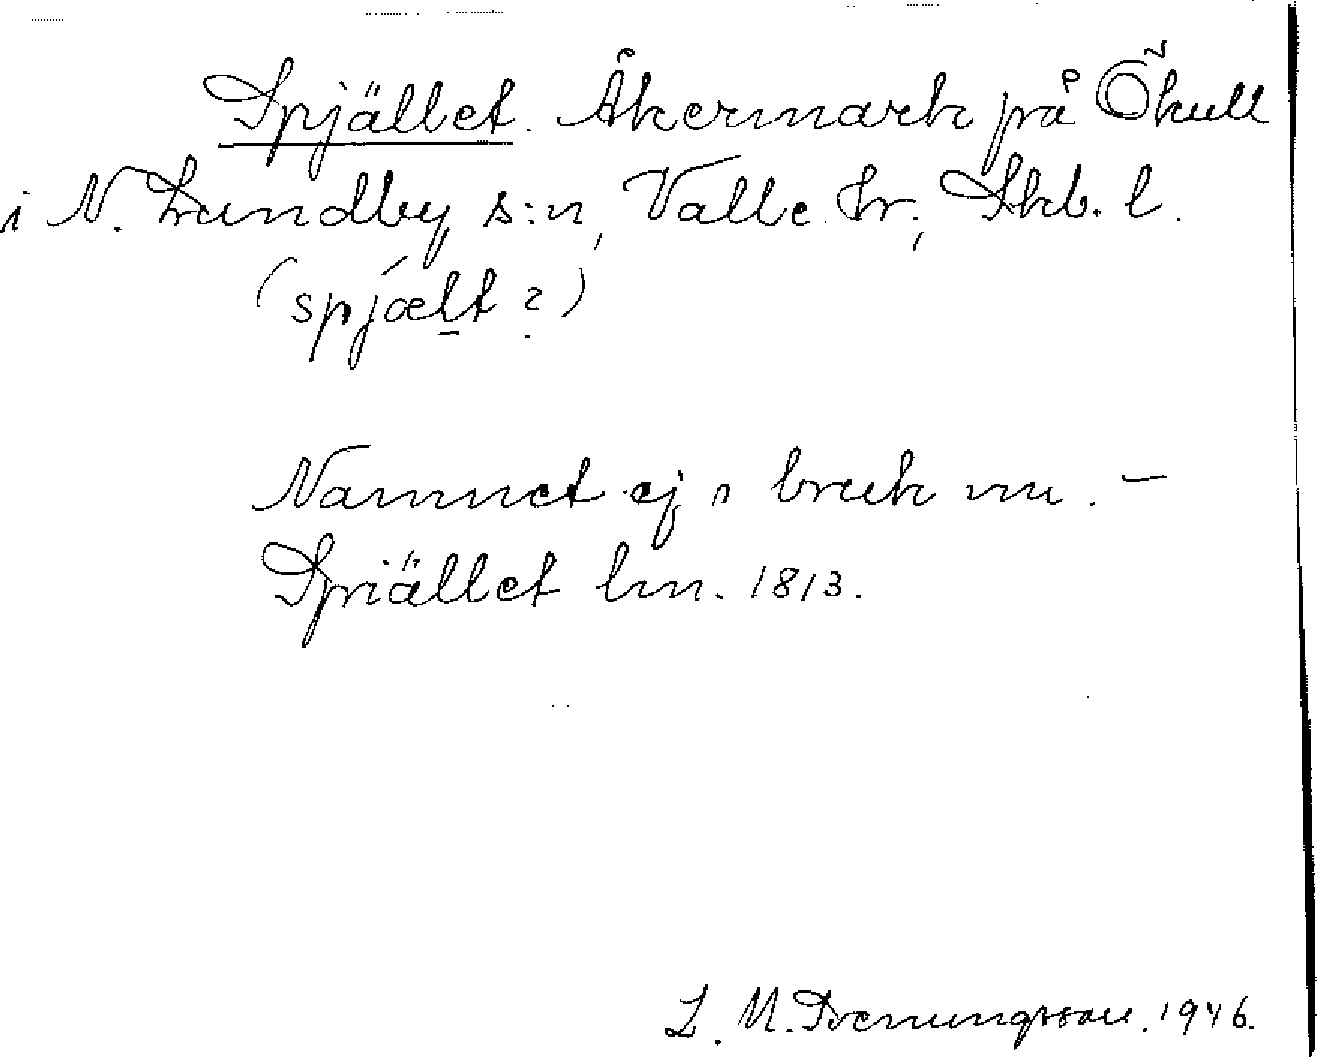 Spjället. Åkermark på Ökull
i N. Lundby s:n, Valle hr, Skb. l.
(spjælt?)
Namnet ej i bruk nu. –
Spiället lm. 1813.
L. M. Svenungsson. 1946.